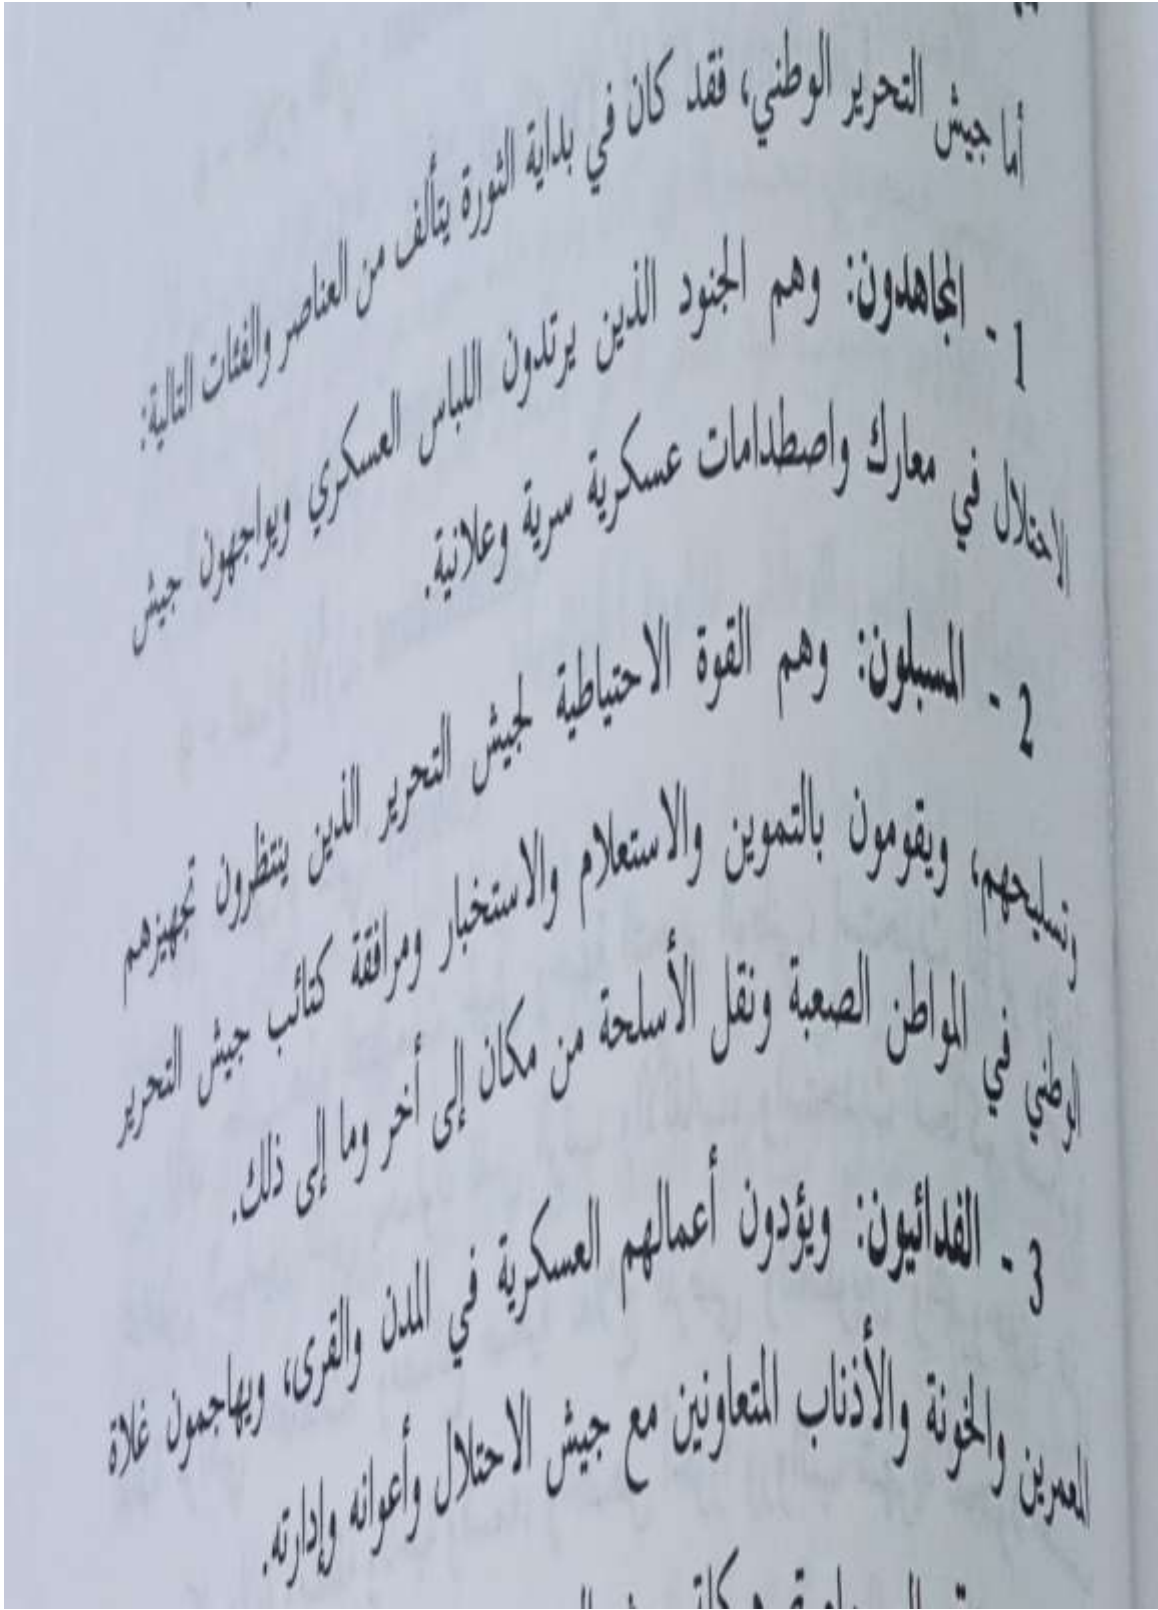 أما جيش التحرير الوطني، فقد كان في بداية الثورة يتألف من العناصر والفئات التالية:
1 - المجاهدون: وهم الجنود الذين يرتدون اللباس العسكري ويواجهون جيش
الاحتلال في معارك واصطدامات عسكرية سرية وعلانية.
2 - المسبلون: وهم القوة الاحتياطية لجيش التحرير الذين ينتظرون تجهيزهم
وتسليحهم، ويقومون بالتموين والاستعلام والاستخبار ومرافقة كتائب جيش التحرير
الوطني في المواطن الصعبة ونقل الأسلحة من مكان إلى أخر وما إلى ذلك.
3 - الفدائيون: ويؤدون أعمالهم العسكرية في المدن والقرى، ويهاجمون غلاة
المعمرين والخونة والأذناب المتعاونين مع جيش الاحتلال وأعوانه وإدارته.